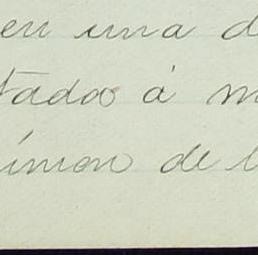 en una d
tados á m
ínion de l